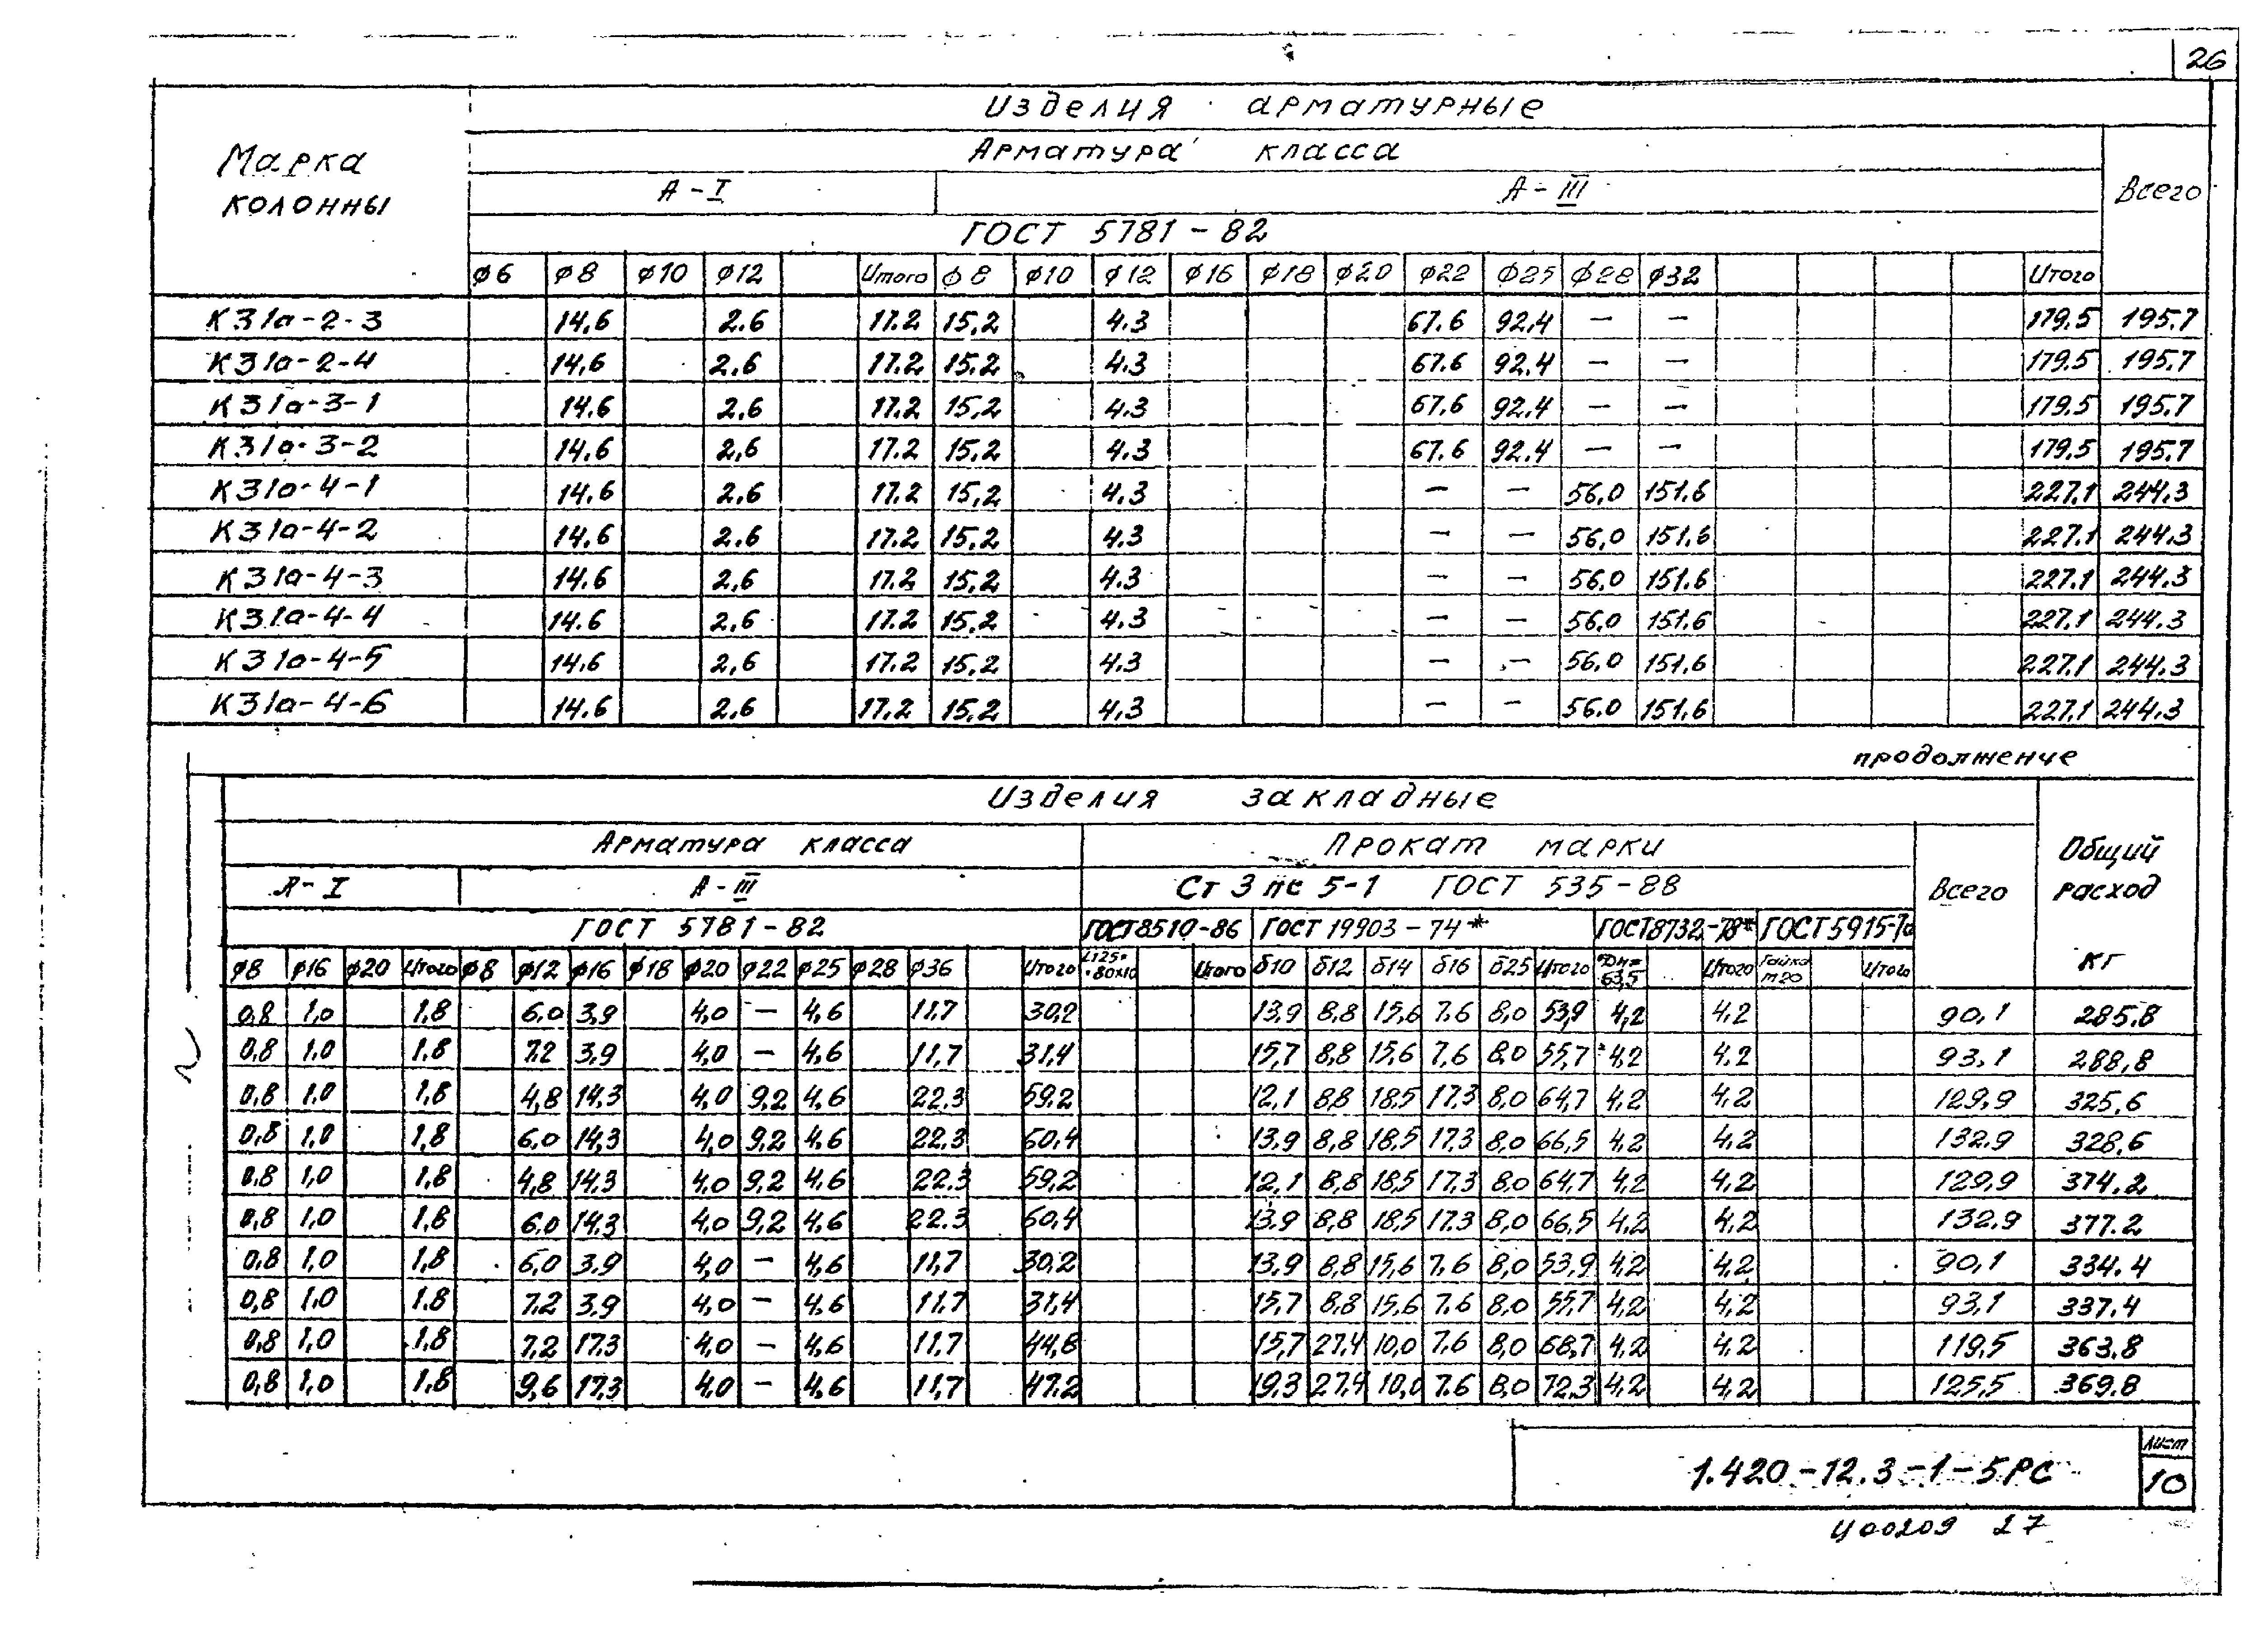 26
Изделия арматурные
Марка колонны
Арматура класса
Всего
А-I А-III
ГОСТ 5781-82
ф6 ф8 ф10 ф12 Итого ф8 ф10 ф12 ф16 ф18 ф20 ф22 ф25 ф28 ф32 Итого
К31а-2-3 14,6 2.6 17.2 15,2 4.3 67.6 92.4 — — 179.5 195.7
К31а-2-4 14,6 2,6 17.2 15.2 4.3 67.6 92.4 — — 179.5 195.7
К31а-3-1 14.6 2,6 17.2 15,2 4.3 67.6 92.4 — — 179.5 195.7
К31а-3-2 14.6 2,6 17.2 15.2 4.3 67.6 92.4 — — 179,5 195.7
К31а-4-1 14.6 2,6 17.2 15,2 4.3 — — 56,0 151.6 227.1 244.3
К31а-4-2 14.6 2.6 17.2 15.2 4.3 — — 56,0 151.6 227.1 244.3
К31а-4-3 14.6 2,6 17.2 15.2 4.3 — — 56,0 151.6 227.1 244.3
К31а-4-4 14.6 2,6 17.2 15.2 4.3 — — 56.0 151.6 227.1 244.3
К31а-4-5 14.6 2,6 17.2 15.2 4.3 — — 56,0 151.6 227.1 244.3
К31а-4-6 14.6 2.6 17.2 15.2 4.3 — — 56.0 151.6 227.1 244.3
продолжение
Изделия закладные
Арматура класса Прокат марки
Всего
Общий расход кг
А-I А-III Ст 3 пс 5-1 ГОСТ 535-88
ГОСТ 5781-82 ГОСТ8510-86 ГОСТ 19903-74* ГОСТ8732-78* ГОСТ5915-70
ф8 ф16 ф20 Итого ф8 ф12 ф16 ф18 ф20 ф22 ф25 ф28 ф36 Итого L125×80×10 Итого δ10 δ12 δ14 δ16 δ25 Итого Dн=63,5 Итого Гайка М20 Итого
0,8 1,0 1,8 6.0 3,9 4,0 — 4,6 11.7 30,2 13,9 8,8 15,6 7.6 8,0 53,9 4,2 4.2 90,1 285.8
0,8 1.0 1,8 7.2 3,9 4,0 — 4,6 11,7 31,4 15,7 8,8 15.6 7,6 8,0 55,7 4,2 4.2 93,1 288,8
0,8 1.0 1,8 4,8 14,3 4,0 9,2 4,6 22.3 59,2 12,1 8,8 18,5 17,3 8,0 64,7 4,2 4,2 129,9 325,6
0,8 1,0 1,8 6.0 14,3 4,0 9,2 4,6 22.3 60,4 13,9 8,8 18,5 17,3 8,0 66,5 4,2 4,2 132.9 328,6
0,8 1,0 1,8 4,8 14.3 4.0 9,2 4.6 22.3 59,2 12,1 8,8 18,5 17,3 8,0 64,7 4,2 4,2 129,9 374.2
0,8 1.0 1,8 6.0 14,3 4,0 9,2 4,6 22.3 60,4 13.9 8,8 18,5 17.3 8,0 66,5 4,2 4,2 132.9 377.2
0,8 1,0 1,8 6,0 3.9 4,0 — 4,6 11,7 30,2 13,9 8,8 15,6 7,6 8,0 53,9 4,2 4,2 90,1 334.4
0,8 1.0 1.8 7,2 3,9 4,0 — 4,6 11.7 31,4 15,7 8,8 15,6 7,6 8,0 55,7 4,2 4,2 93,1 337.4
0,8 1,0 1,8 7,2 17.3 4,0 — 4,6 11,7 44,8 15,7 27,4 10,0 7.6 8,0 68,7 4,2 4,2 119,5 363,8
0,8 1,0 1,8 9,6 17,3 4,0 — 4,6 11,7 47.2 19,3 27.4 10,0 7.6 8,0 72,3 4,2 4,2 125,5 369.8
1.420-12.3-1-5РС
Лист
10
Ц00209 27